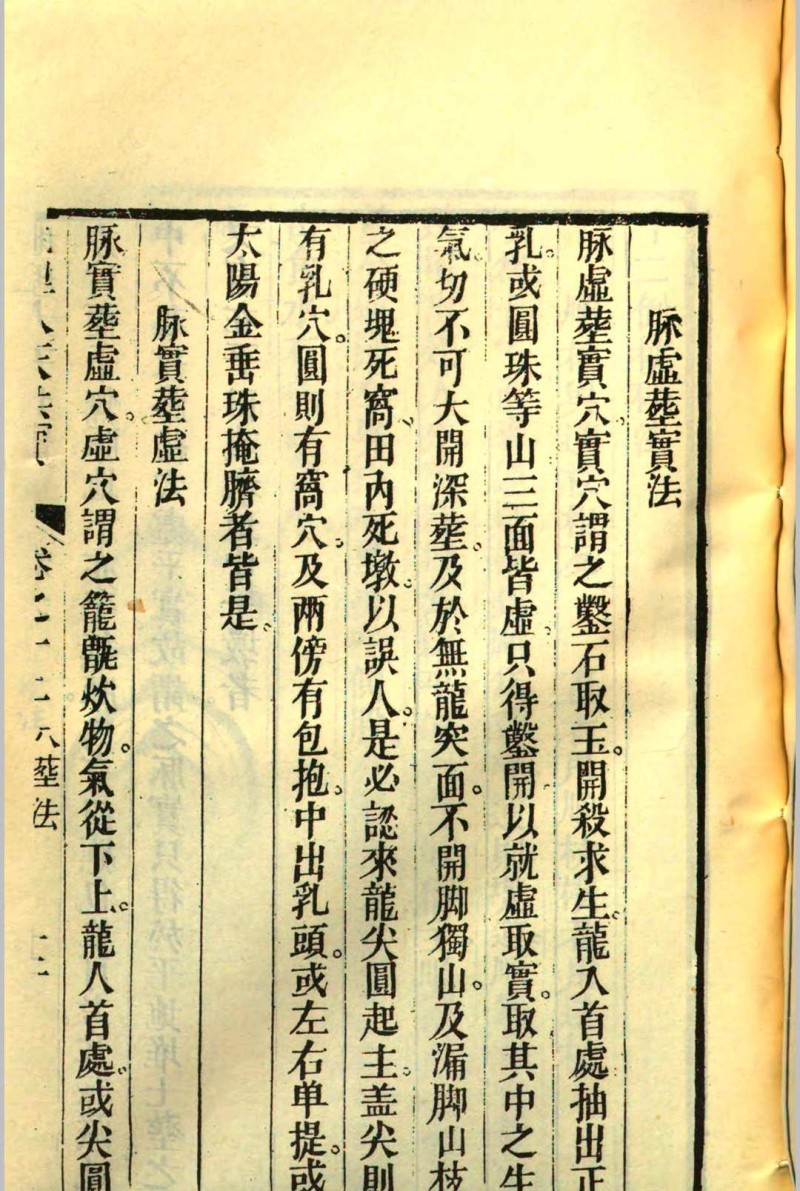 脉虛塟實法
脉虛塟實穴。實穴謂之鑿石取玉。開殺求生。龍入首處抽出正
乳。或圓珠等山三面皆虛。只得鑿開以就虛取實。取其中之生
氣。切不可大開深塟。及於無龍突面。不開脚獨山。及漏脚山枝
之硬塊死窩、田內死墩。以誤人。是必認來龍尖圓起主。盖尖則
有乳穴。圓則有窩穴。及兩傍有包抱。中出乳頭。或左右单提。或
太陽金垂珠掩臍者皆是。
脉實塟虛法
脉實塟虛穴。虛穴謂之籠甑炊物。氣從下上。龍人首處。或尖圓
塟法